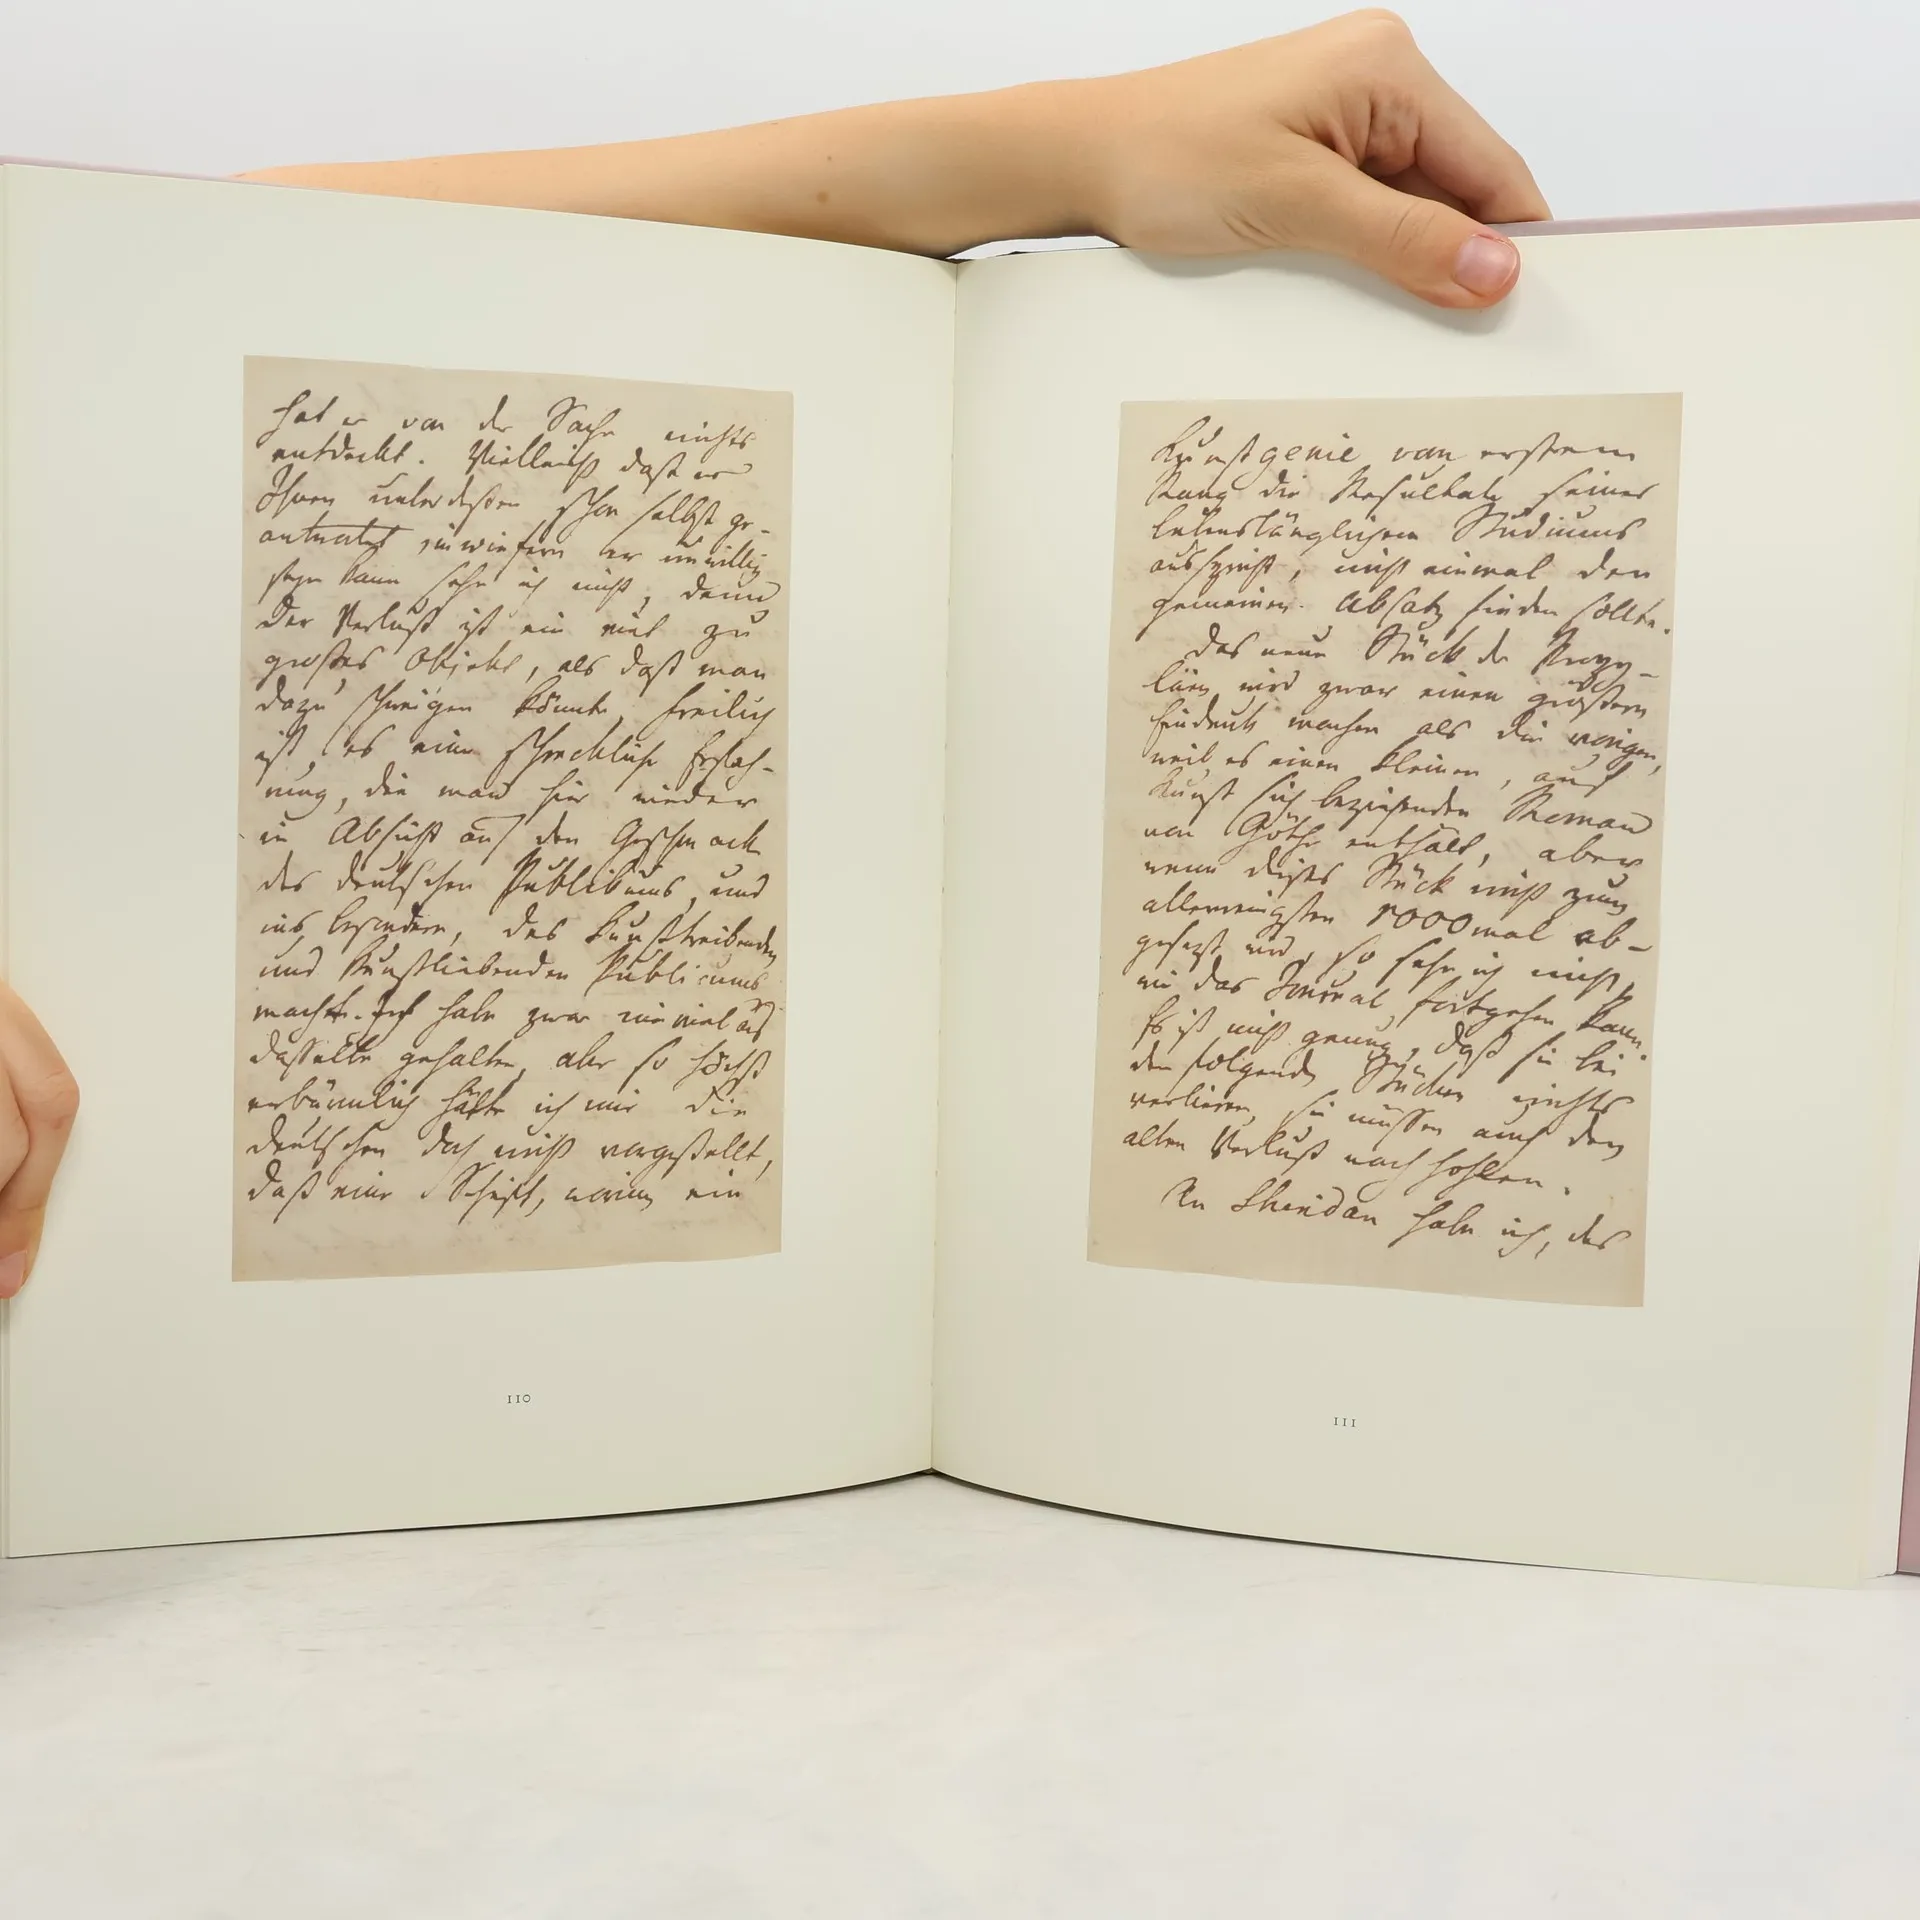 hat er von der Sache nichts
entdeckt. Vielleicht daß er
Ihnen unterdeßen schon selbst ge-
antwortet inwiefern er unwillig
seyn kann sehe ich nicht, denn
der Verlust ist ein viel zu
großes Objekt, als daß man
dazu schweigen könnte, freilich
ist es eine schreckliche Erfah-
rung, die man hier wieder
in Absicht auf den Geschmack
des deutschen Publikums, und
ins besondere, des Kunsttreibenden
und Kunstliebenden Publicums
macht. Ich habe zwar nie viel auf
dasselbe gehalten, aber so höchst
erbärmlich hätte ich mir die
deutschen doch nicht vorgestellt,
daß eine Schrift, worinn ein
110
Kunstgenie vom ersten
Rang die Resultate seines
lebenslänglichen Studiums
ausspricht, nicht einmal den
gemeinen Absatz finden sollte.
Das neue Stück der Propy-
läen wird zwar einen größern
Eindruck machen als die vorigen,
weil es einen kleinen, auf
Kunst sich beziehenden Roman
von Göthe enthält, aber
wenn dieses Stück nicht zum
allerwenigsten 1000mal ab-
gesezt wird, so sehe ich nicht,
wie das Journal fortgehen kann.
Es ist nicht genug, daß sie bei
den folgenden Stücken nichts
verlieren, sie müssen auch den
alten Verlust nach hohlen.
An Sheridan habe ich, das
111